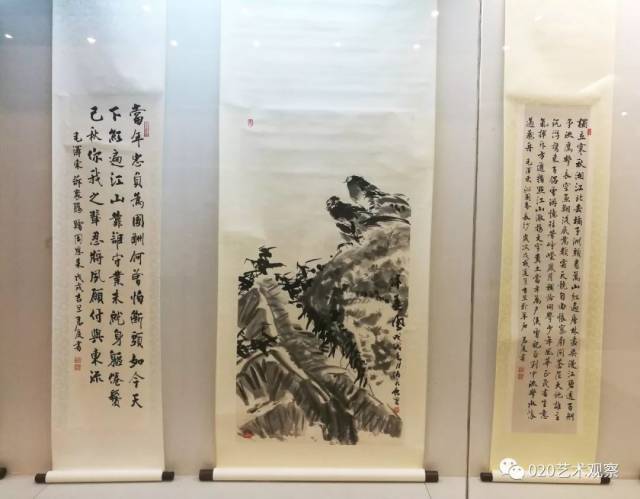 當年忠貞為國酬何曾怕斷頭如今天
下紅遍江山靠誰守業未就身軀倦鬢
已秋你我之輩忍將夙願付與東流
毛澤東 訴衷情 贈周恩來 戊戌吉旦君度書
戊戌
獨立寒秋湘江北去橘子洲頭看萬山紅遍層林盡染漫江碧透百舸
爭流鷹擊長空魚翔淺底萬類霜天競自由悵寥廓問蒼茫大地誰主
沉浮攜來百侶曾遊憶往昔崢嶸歲月稠恰同學少年風華正茂書生意
氣揮斥方遒指點江山激揚文字糞土當年萬戶侯曾記否到中流擊水浪
遏飛舟 毛澤東沁園春長沙 歲次戊戌 君度書
020艺术观察